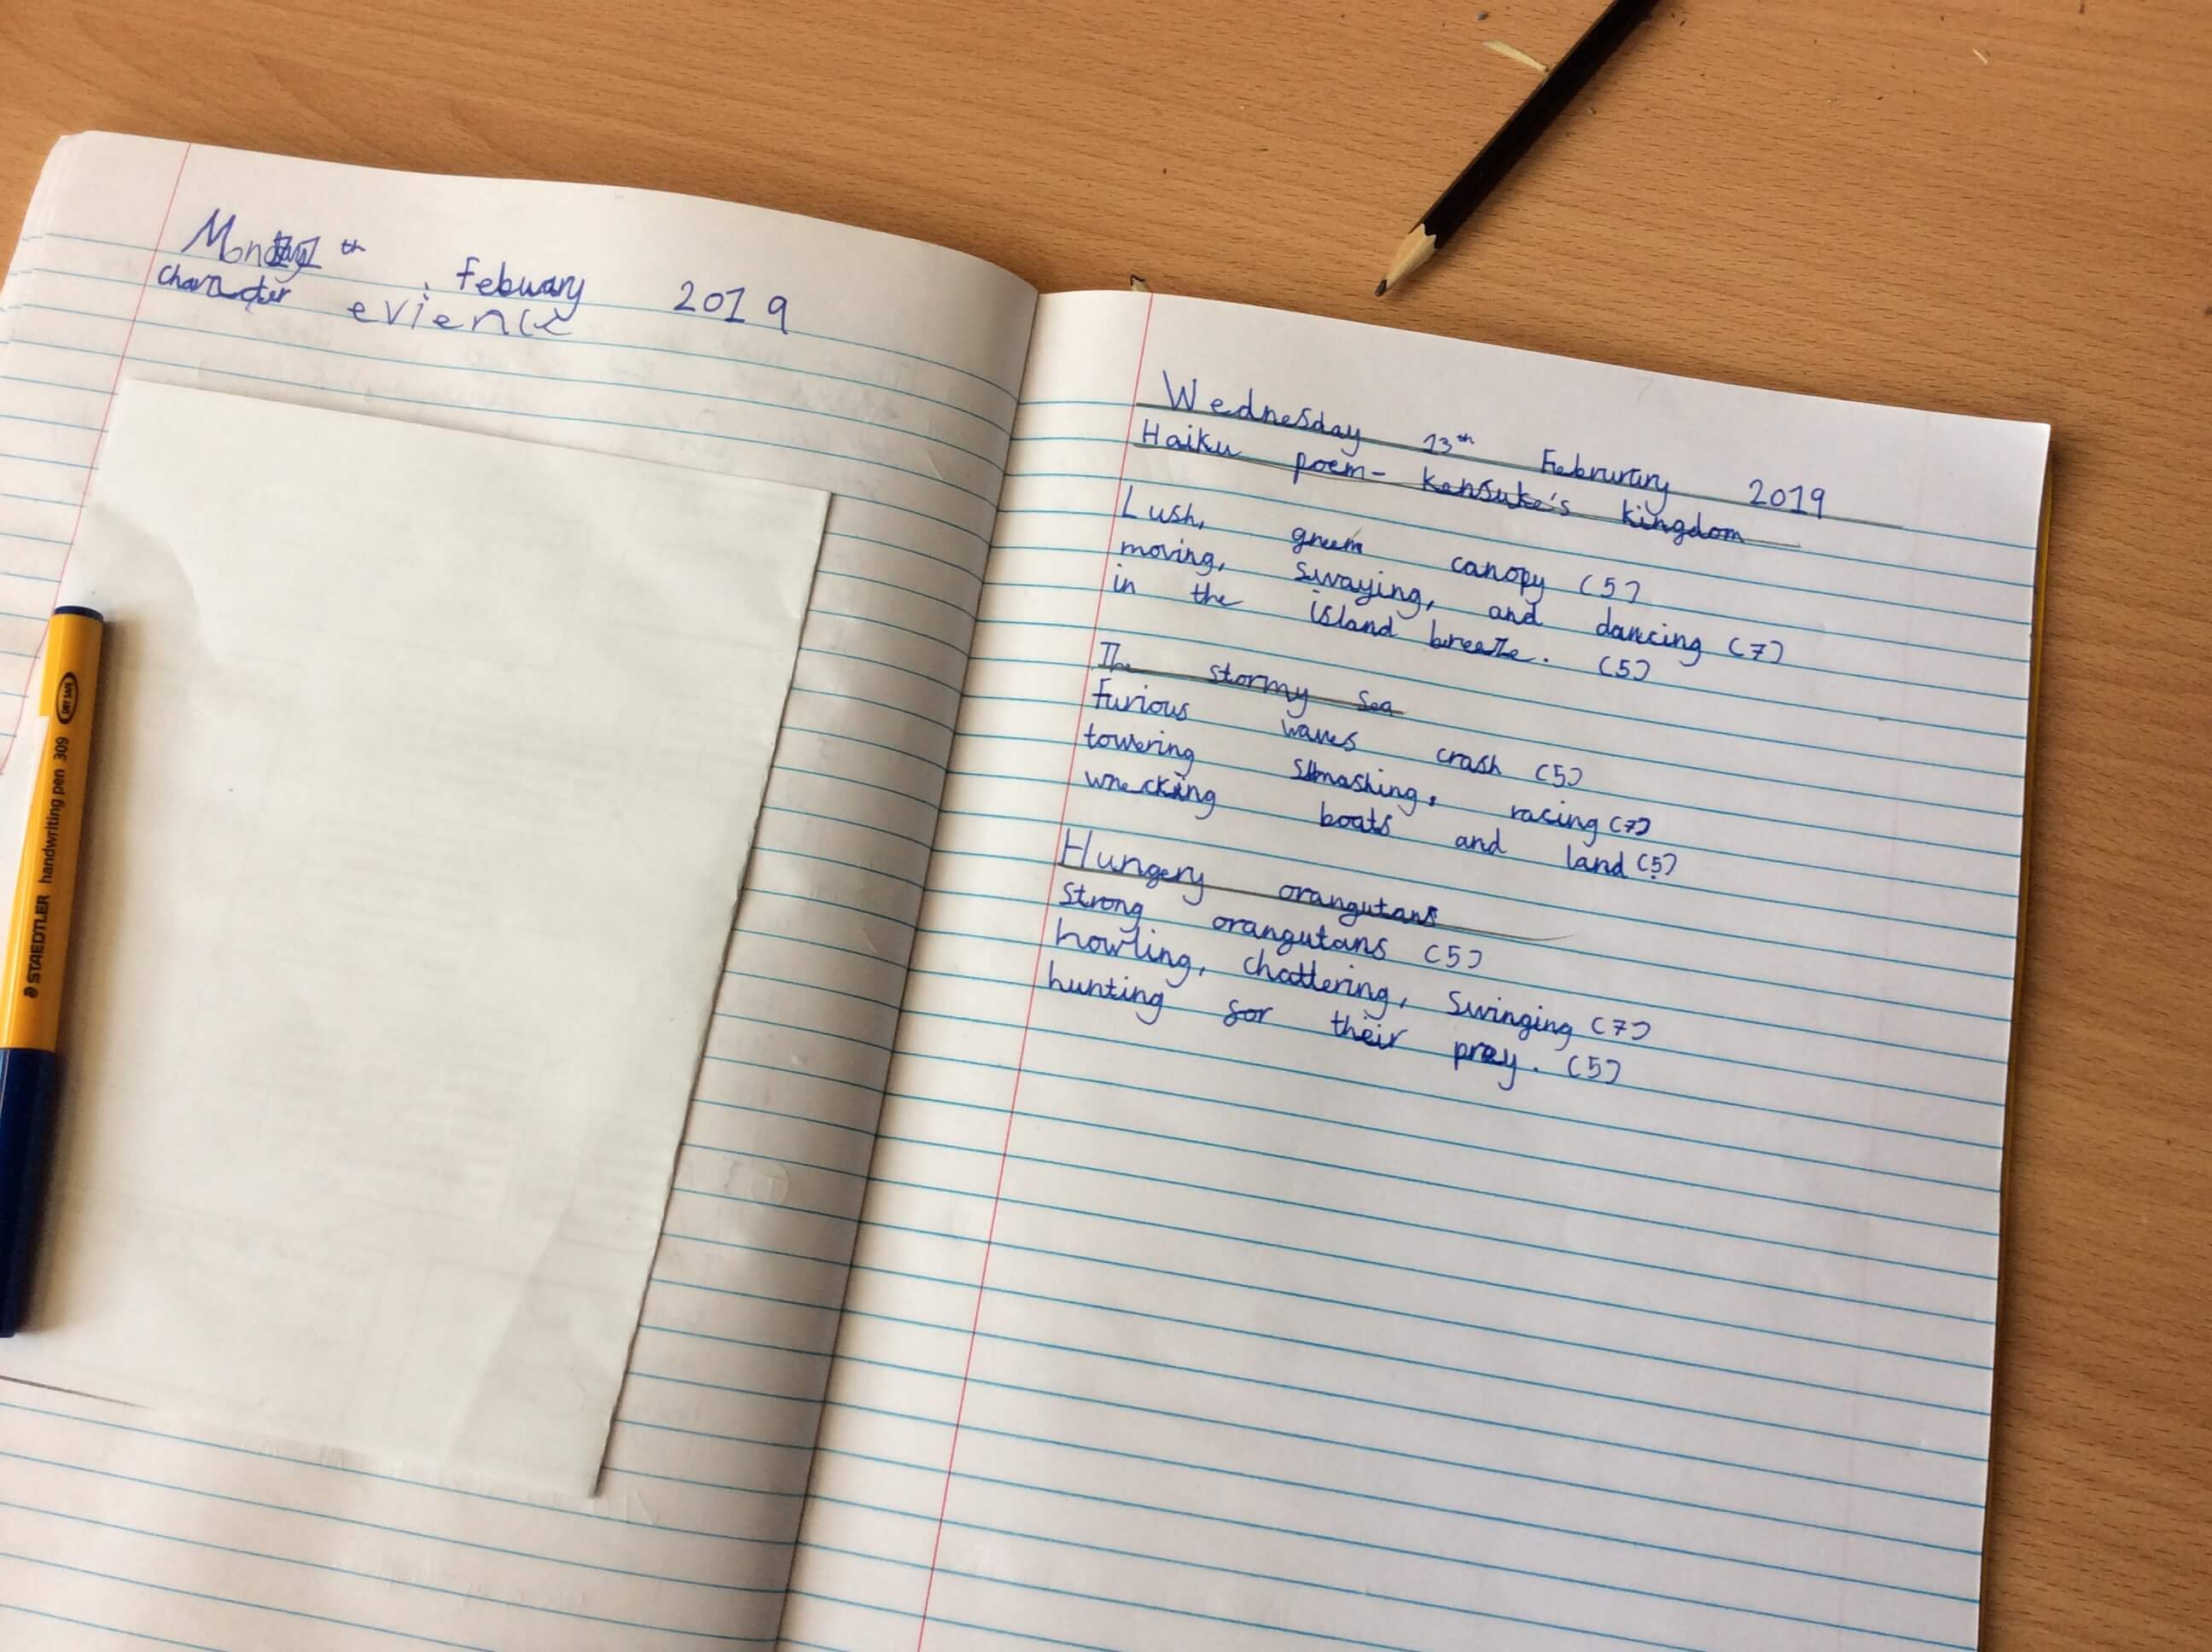 th
Febuary 2019
character evience
STAEDTLER handwriting pen 309
DRY SAFE
Wednesday 13th Februrary 2019
Haiku poem- kensuke's kingdom
Lush, green canopy (5)
moving, swaying, and dancing (7)
in the island breeze. (5)
The stormy sea
Furious waves crash (5)
towering smashing, racing (7)
wrecking boats and land (5)
Hungery orangutans
Strong orangutans (5)
howling, chattering, swinging (7)
hunting for their prey. (5)